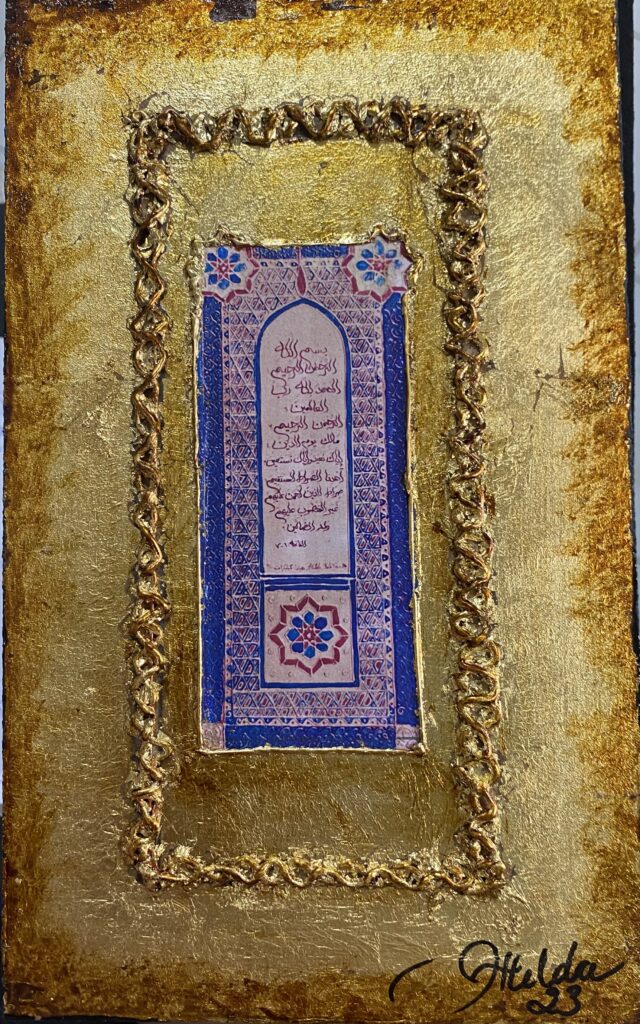 بسم الله
الرحمن الرحيم
الحمد لله رب
العالمين .
الرحمن الرحيم .
ملك يوم الدين .
إياك نعبد وإياك نستعين .
اهدنا الصراط المستقيم
صراط الذين أنعمت عليهم
غير المغضوب عليهم
ولا الضالين .
الفاتحة ١ - ٧
Hilda
23